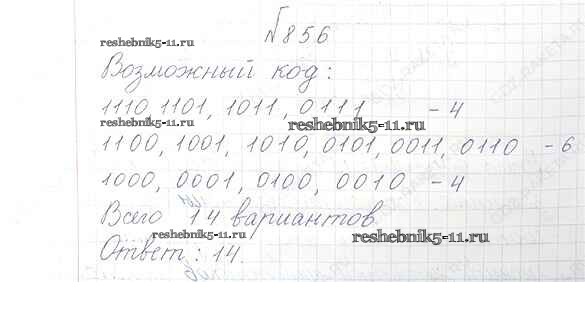 №856
reshebnik5-11.ru
Возможный код:
1110, 1101, 1011, 0111 - 4
reshebnik5-11.ru reshebnik5-11.ru
1100, 1001, 1010, 0101, 0011, 0110 - 6
1000, 0001, 0100, 0010 - 4
Всего 14 вариантов.
reshebnik5-11.ru reshebnik5-11.ru
Ответ: 14.